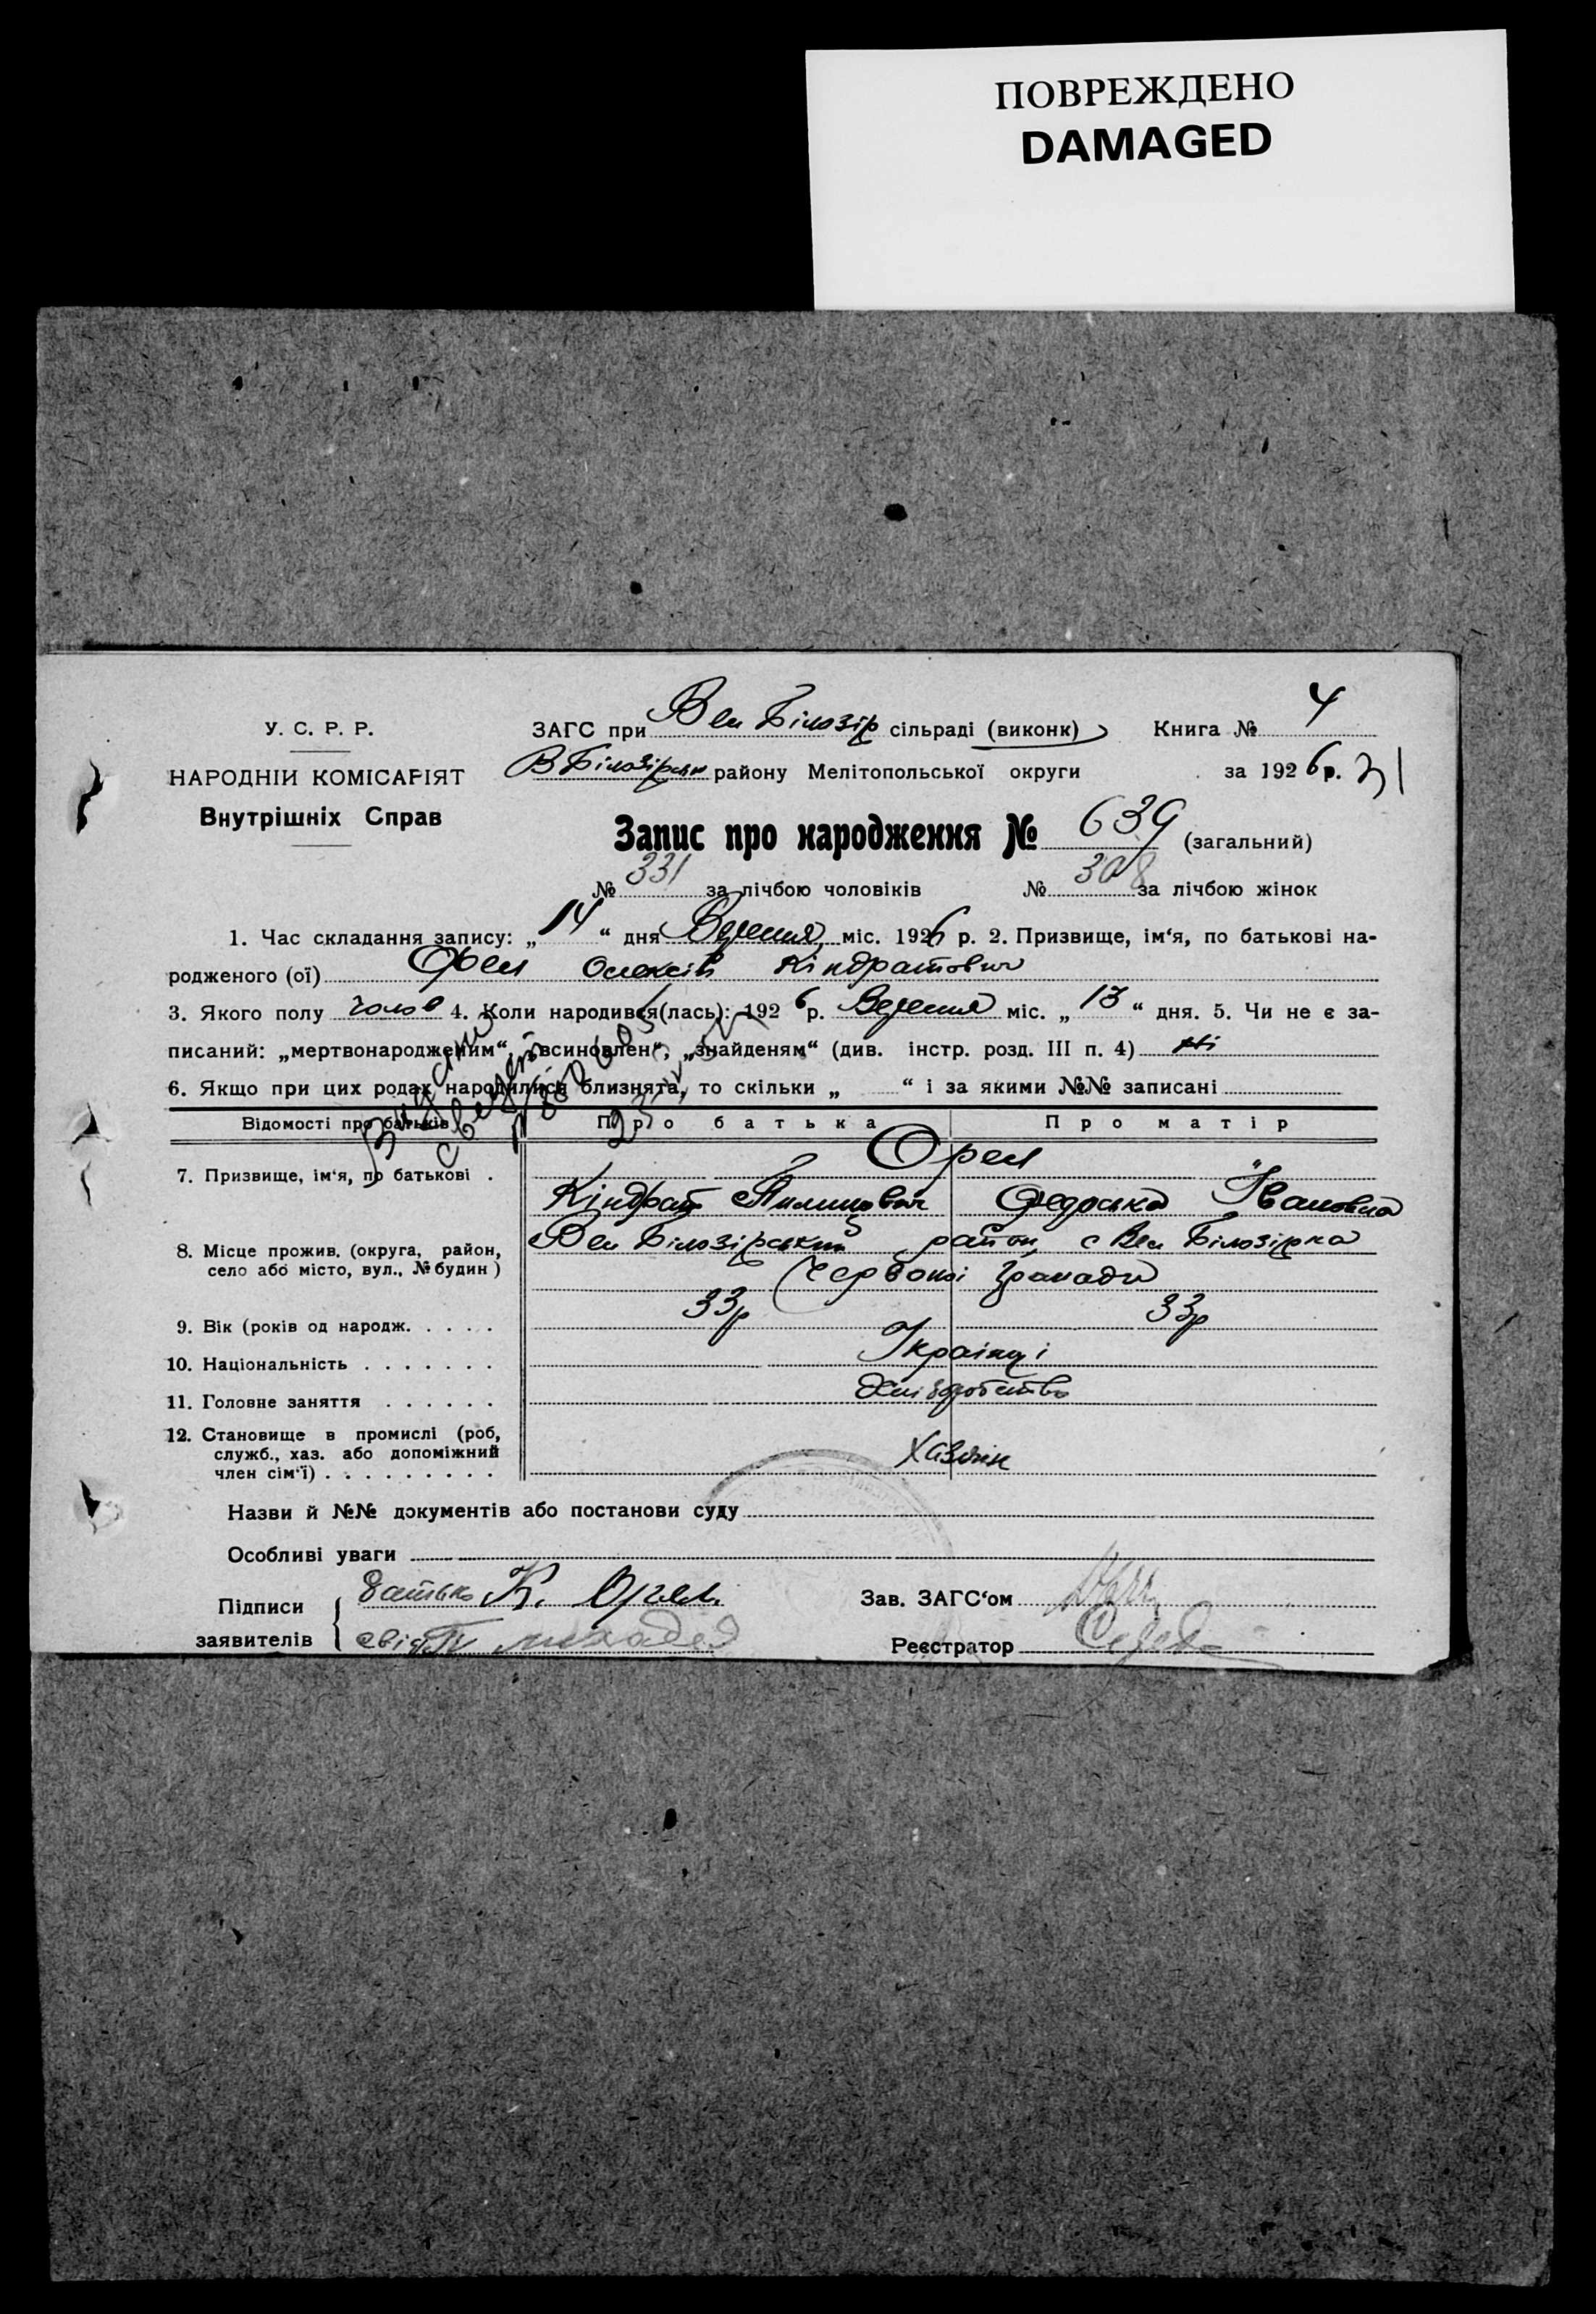 ПОВРЕЖДЕНО
DAMAGED
У. С. Р. Р.
НАРОДНІЙ КОМІСАРІЯТ
Внутрішніх Справ
ЗАГС при Вел Білозір сільраді (виконк) Книга № 4
В Білозірськ району Мелітопольської округи за 1926 р. 31
Запис про народження № 639 (загальний)
№ 331 за лічбою чоловіків № 308 за лічбою жінок
1. Час складання запису: „14“ дня Вересня міс. 1926 р. 2. Призвище, ім‘я, по батькові на-
родженого (ої) Орел Олексій Кіндратович
3. Якого полу чолов 4. Коли народився(лась): 1926 р. Вересня міс. „13“ дня. 5. Чи не є за-
писаний: „мертвонародженим“, „всиновлен“, „знайденям“ (див. інстр. розд. III п. 4) ні
6. Якщо при цих родах народилися близнята, то скільки „ “ і за якими №№ записані
Відомості про батьків Про батька Про матір
7. Призвище, ім‘я, по батькові . Орел
Кіндрат Пилипович Федоська Івановна
8. Місце прожив. (округа, район, село або місто, вул., № будин) Вел Білозірський район, с Вел Білозірка
Червоної Громади
9. Вік (років од народж. . . . . 33р 33р
10. Національність . . . . . . . Українці
11. Головне заняття . . . . . . Хліборобство
12. Становище в промислі (роб,
служб., хаз. або допоміжний
член сім‘ї) . . . . . . . . . Хазяїн
Назви й №№ документів або постанови суду
Особливі уваги
Підписи заявителів батько К. Орел
свід
Зав. ЗАГС‘ом
Реєстратор